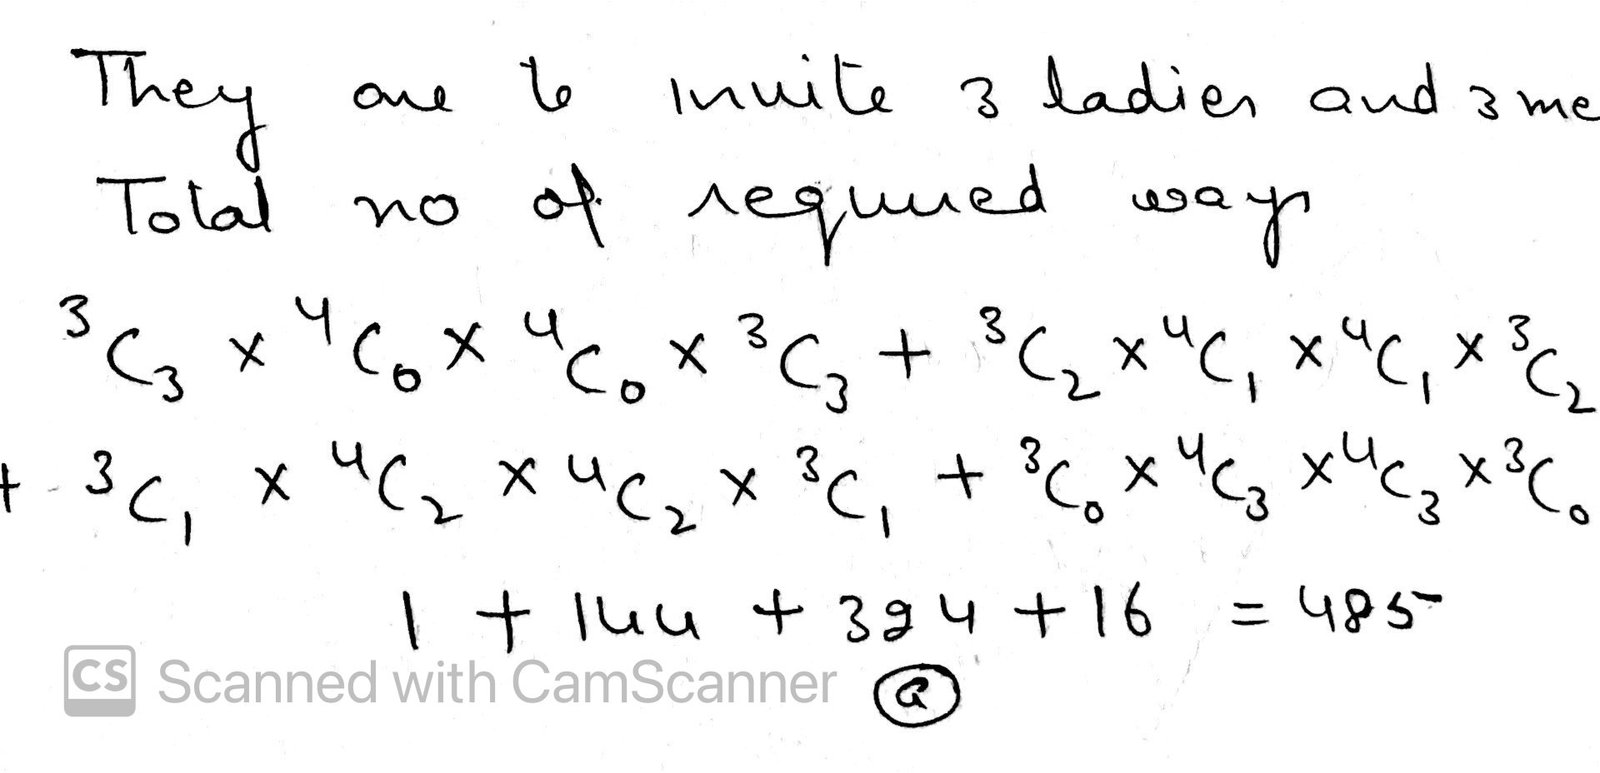 They are to invite 3 ladies and 3 me
Total no of required ways
³C₃ × ⁴C₀ × ⁴C₀ × ³C₃ + ³C₂ × ⁴C₁ × ⁴C₁ × ³C₂
+ ³C₁ × ⁴C₂ × ⁴C₂ × ³C₁ + ³C₀ × ⁴C₃ × ⁴C₃ × ³C₀
1 + 144 + 324 + 16 = 485
CS Scanned with CamScanner
a